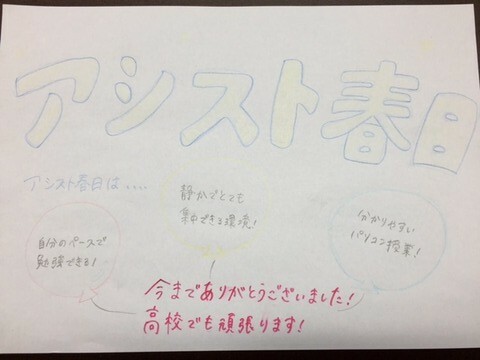 アシスト春日
アシスト春日は....
静かでとても
集中できる環境!
自分のペースで
勉強できる!
分かりやすい
パソコン授業!
今までありがとうございました!
高校でも頑張ります!